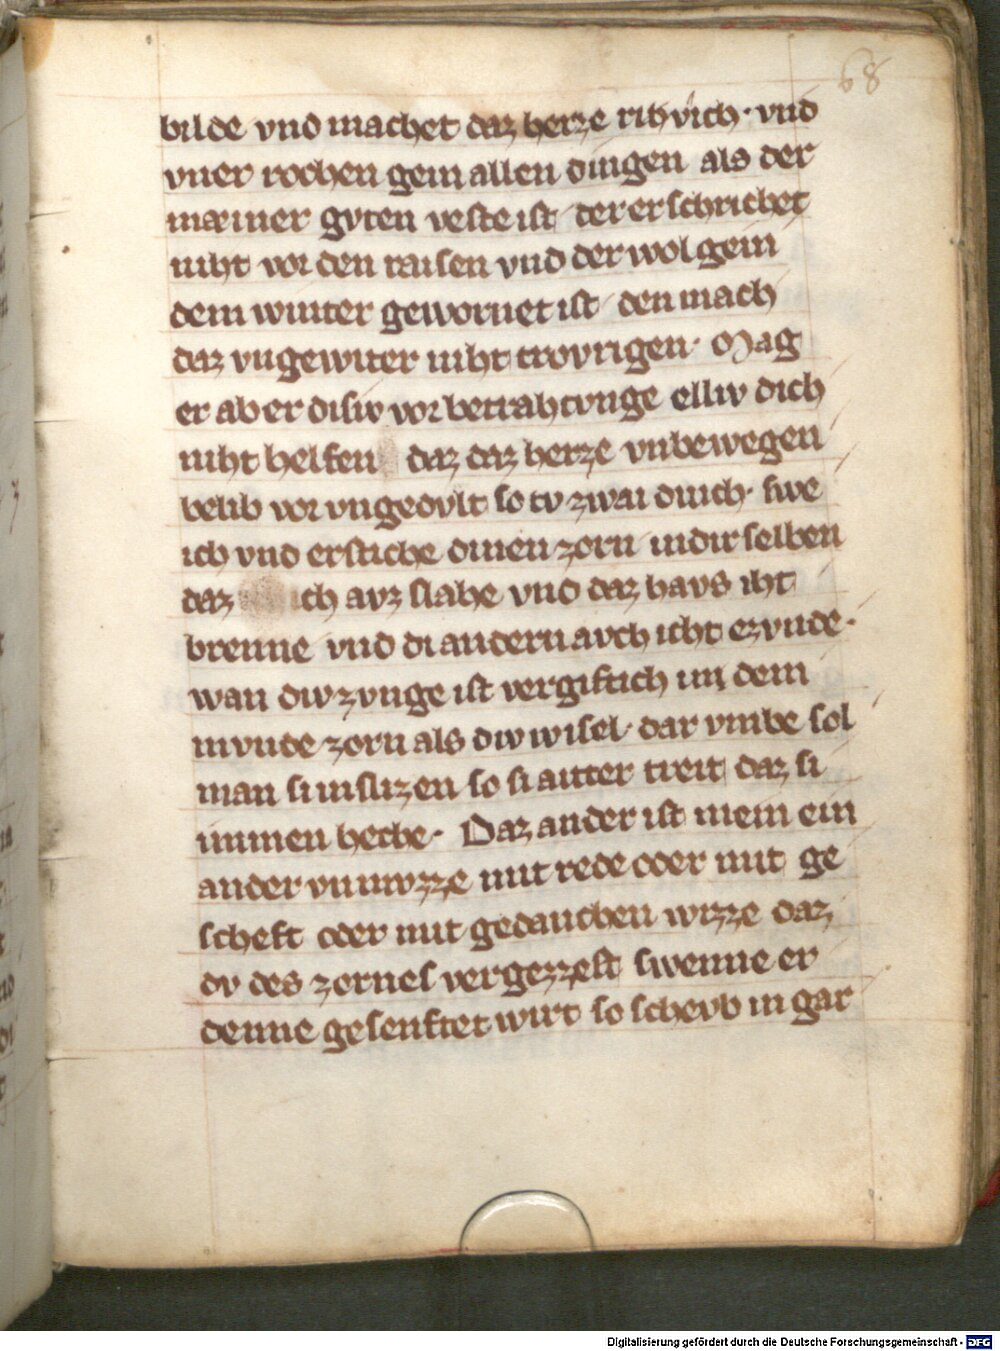 68
bilde vnd machet daz herze rihvich · vnd
vner rochen gein allen dingen als der
mæiner gvten veste ist / der erschrichet
niht vor den raisen vnd der wol gein
dem winter gewornet ist / den mach
daz vngewiter niht trovrigen · Mag
er ab er disiv vor betrahtvnge elliv dich
niht helfen daz daz herze vnbewegen
belib vor vngedvlt so tv zwai dinch · swe
ich vnd erstiche dinen zorn in dir selben
daz ich avz slahe vnd daz havs iht
brenne vnd di andern avch icht ezvnde ·
wan div zvnge ist vergiftich in dem
mvnde zorn als div wisel · dar vmbe sol
man si inslizen so si aitter treit daz si
immen hecbe · Daz ander ist niem ein
ander vnnvzze mit rede oder mit ge
scheft oder mit gedanchen wizze daz
dv des zornes vergezzest swenne er
denne gesenftet wirt so schevb in gar
Digitalisierung gefördert durch die Deutsche Forschungsgemeinschaft - DFG